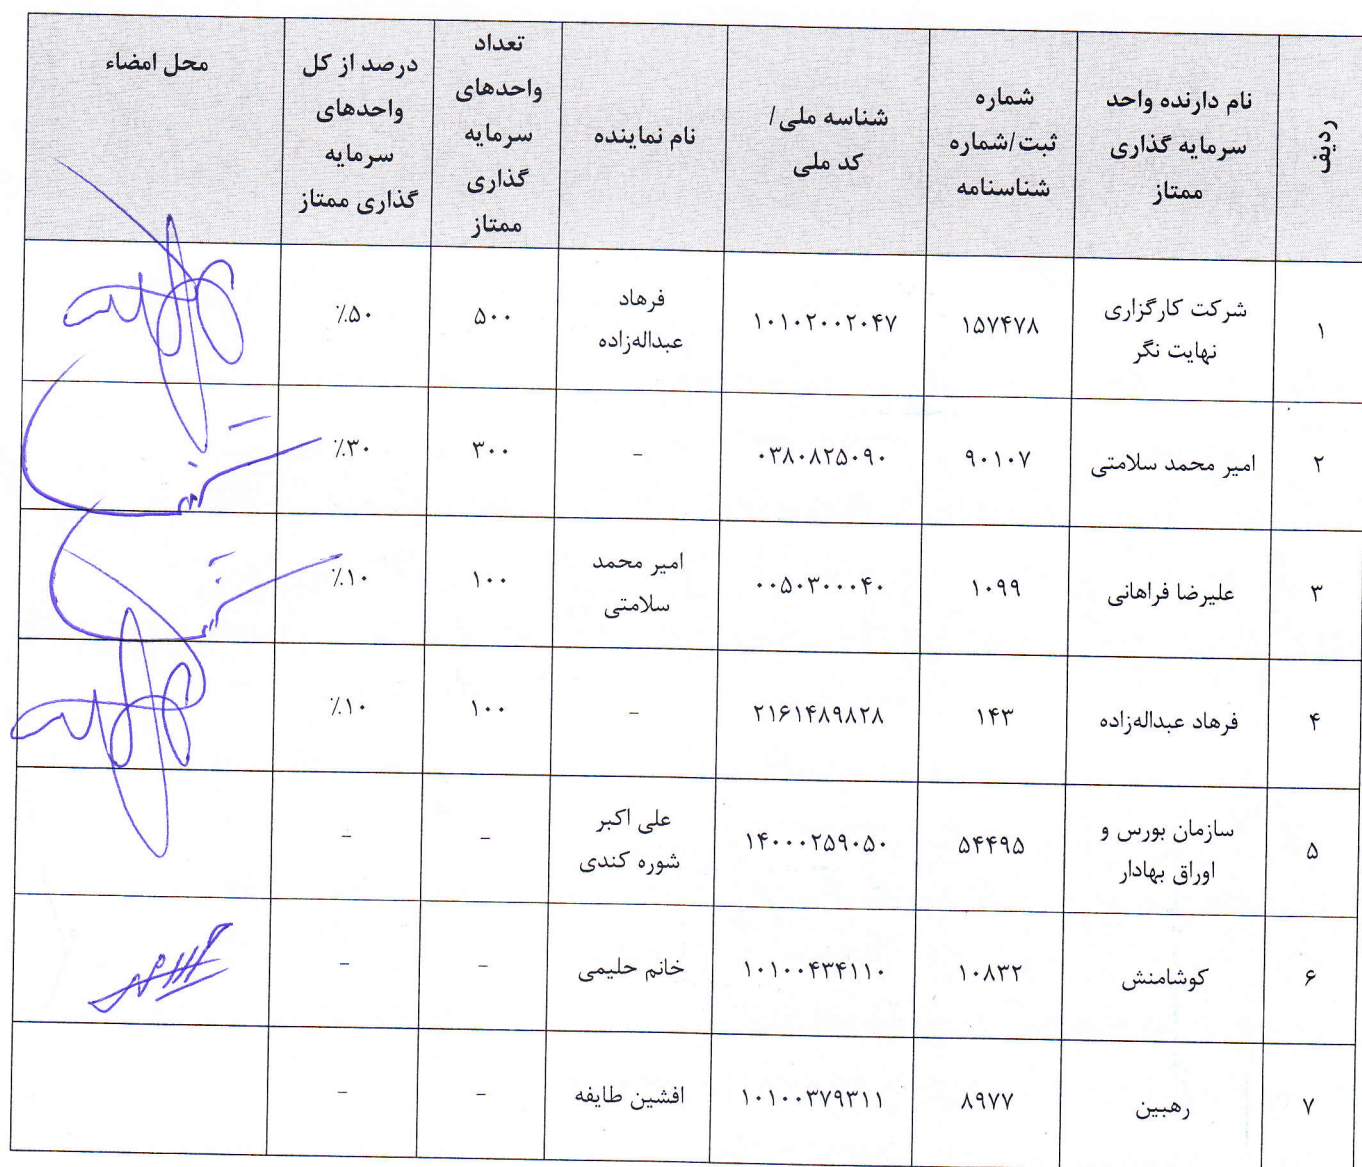 ردیف
نام دارنده واحد
سرمایه گذاری
ممتاز
شماره
ثبت/شماره
شناسنامه
شناسه ملی/
کد ملی
نام نماینده
تعداد
واحدهای
سرمایه
گذاری
ممتاز
درصد از کل
واحدهای
سرمایه
گذاری ممتاز
محل امضاء
۱
شرکت کارگزاری
نهایت نگر
۱۵۷۴۷۸
۱۰۱۰۲۰۰۲۰۴۷
فرهاد
عبداله‌زاده
۵۰۰
٪۵۰
۲
امیر محمد سلامتی
۹۰۱۰۷
۰۳۸۰۸۲۵۰۹۰
-
۳۰۰
٪۳۰
۳
علیرضا فراهانی
۱۰۹۹
۰۰۵۰۳۰۰۰۴۰
امیر محمد
سلامتی
۱۰۰
٪۱۰
۴
فرهاد عبداله‌زاده
۱۴۳
۲۱۶۱۴۸۹۸۲۸
-
۱۰۰
٪۱۰
۵
سازمان بورس و
اوراق بهادار
۵۴۴۹۵
۱۴۰۰۰۲۵۹۰۵۰
علی اکبر
شوره کندی
-
-
۶
کوشامنش
۱۰۸۳۲
۱۰۱۰۰۴۳۴۱۱۰
خانم حلیمی
-
-
۷
رهبین
۸۹۷۷
۱۰۱۰۰۳۷۹۳۱۱
افشین طایفه
-
-